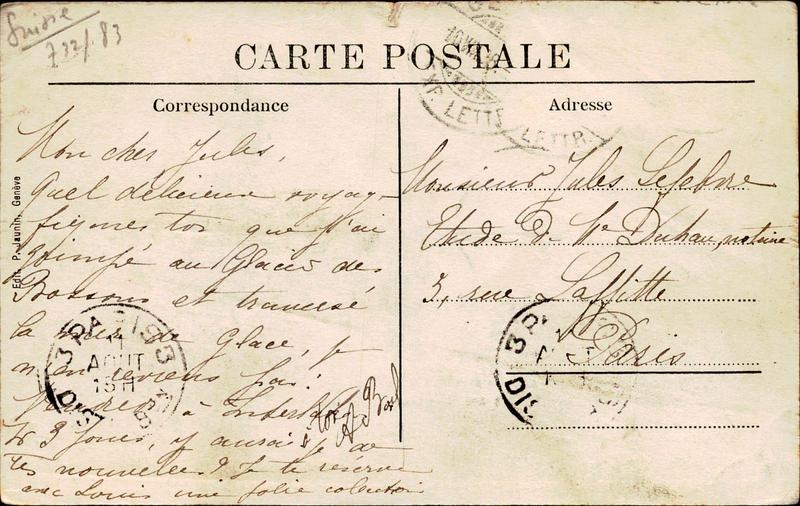 Suisse
732/.83
CARTE POSTALE
Correspondance
Adresse
Edit. P. Jaunin, Genève
Mon cher Jules,
Quel délicieux voyage
figures toi que j'ai
grimpé au Glacier des
Bossons et traversé
la mer de Glace, je
n'en reviens pas!
à
3 jours, y aurai je de
tes nouvelles? Je te réserve
avec Louis une jolie collection
à toi
Monsieur Jules Lefebvre
Etude de Me Duhau, notaire
3, rue Laffitte
Paris
XP. LETTR.
LETTR.
PARIS 3
11
AOUT
15H
DIS
3 PA
DIS